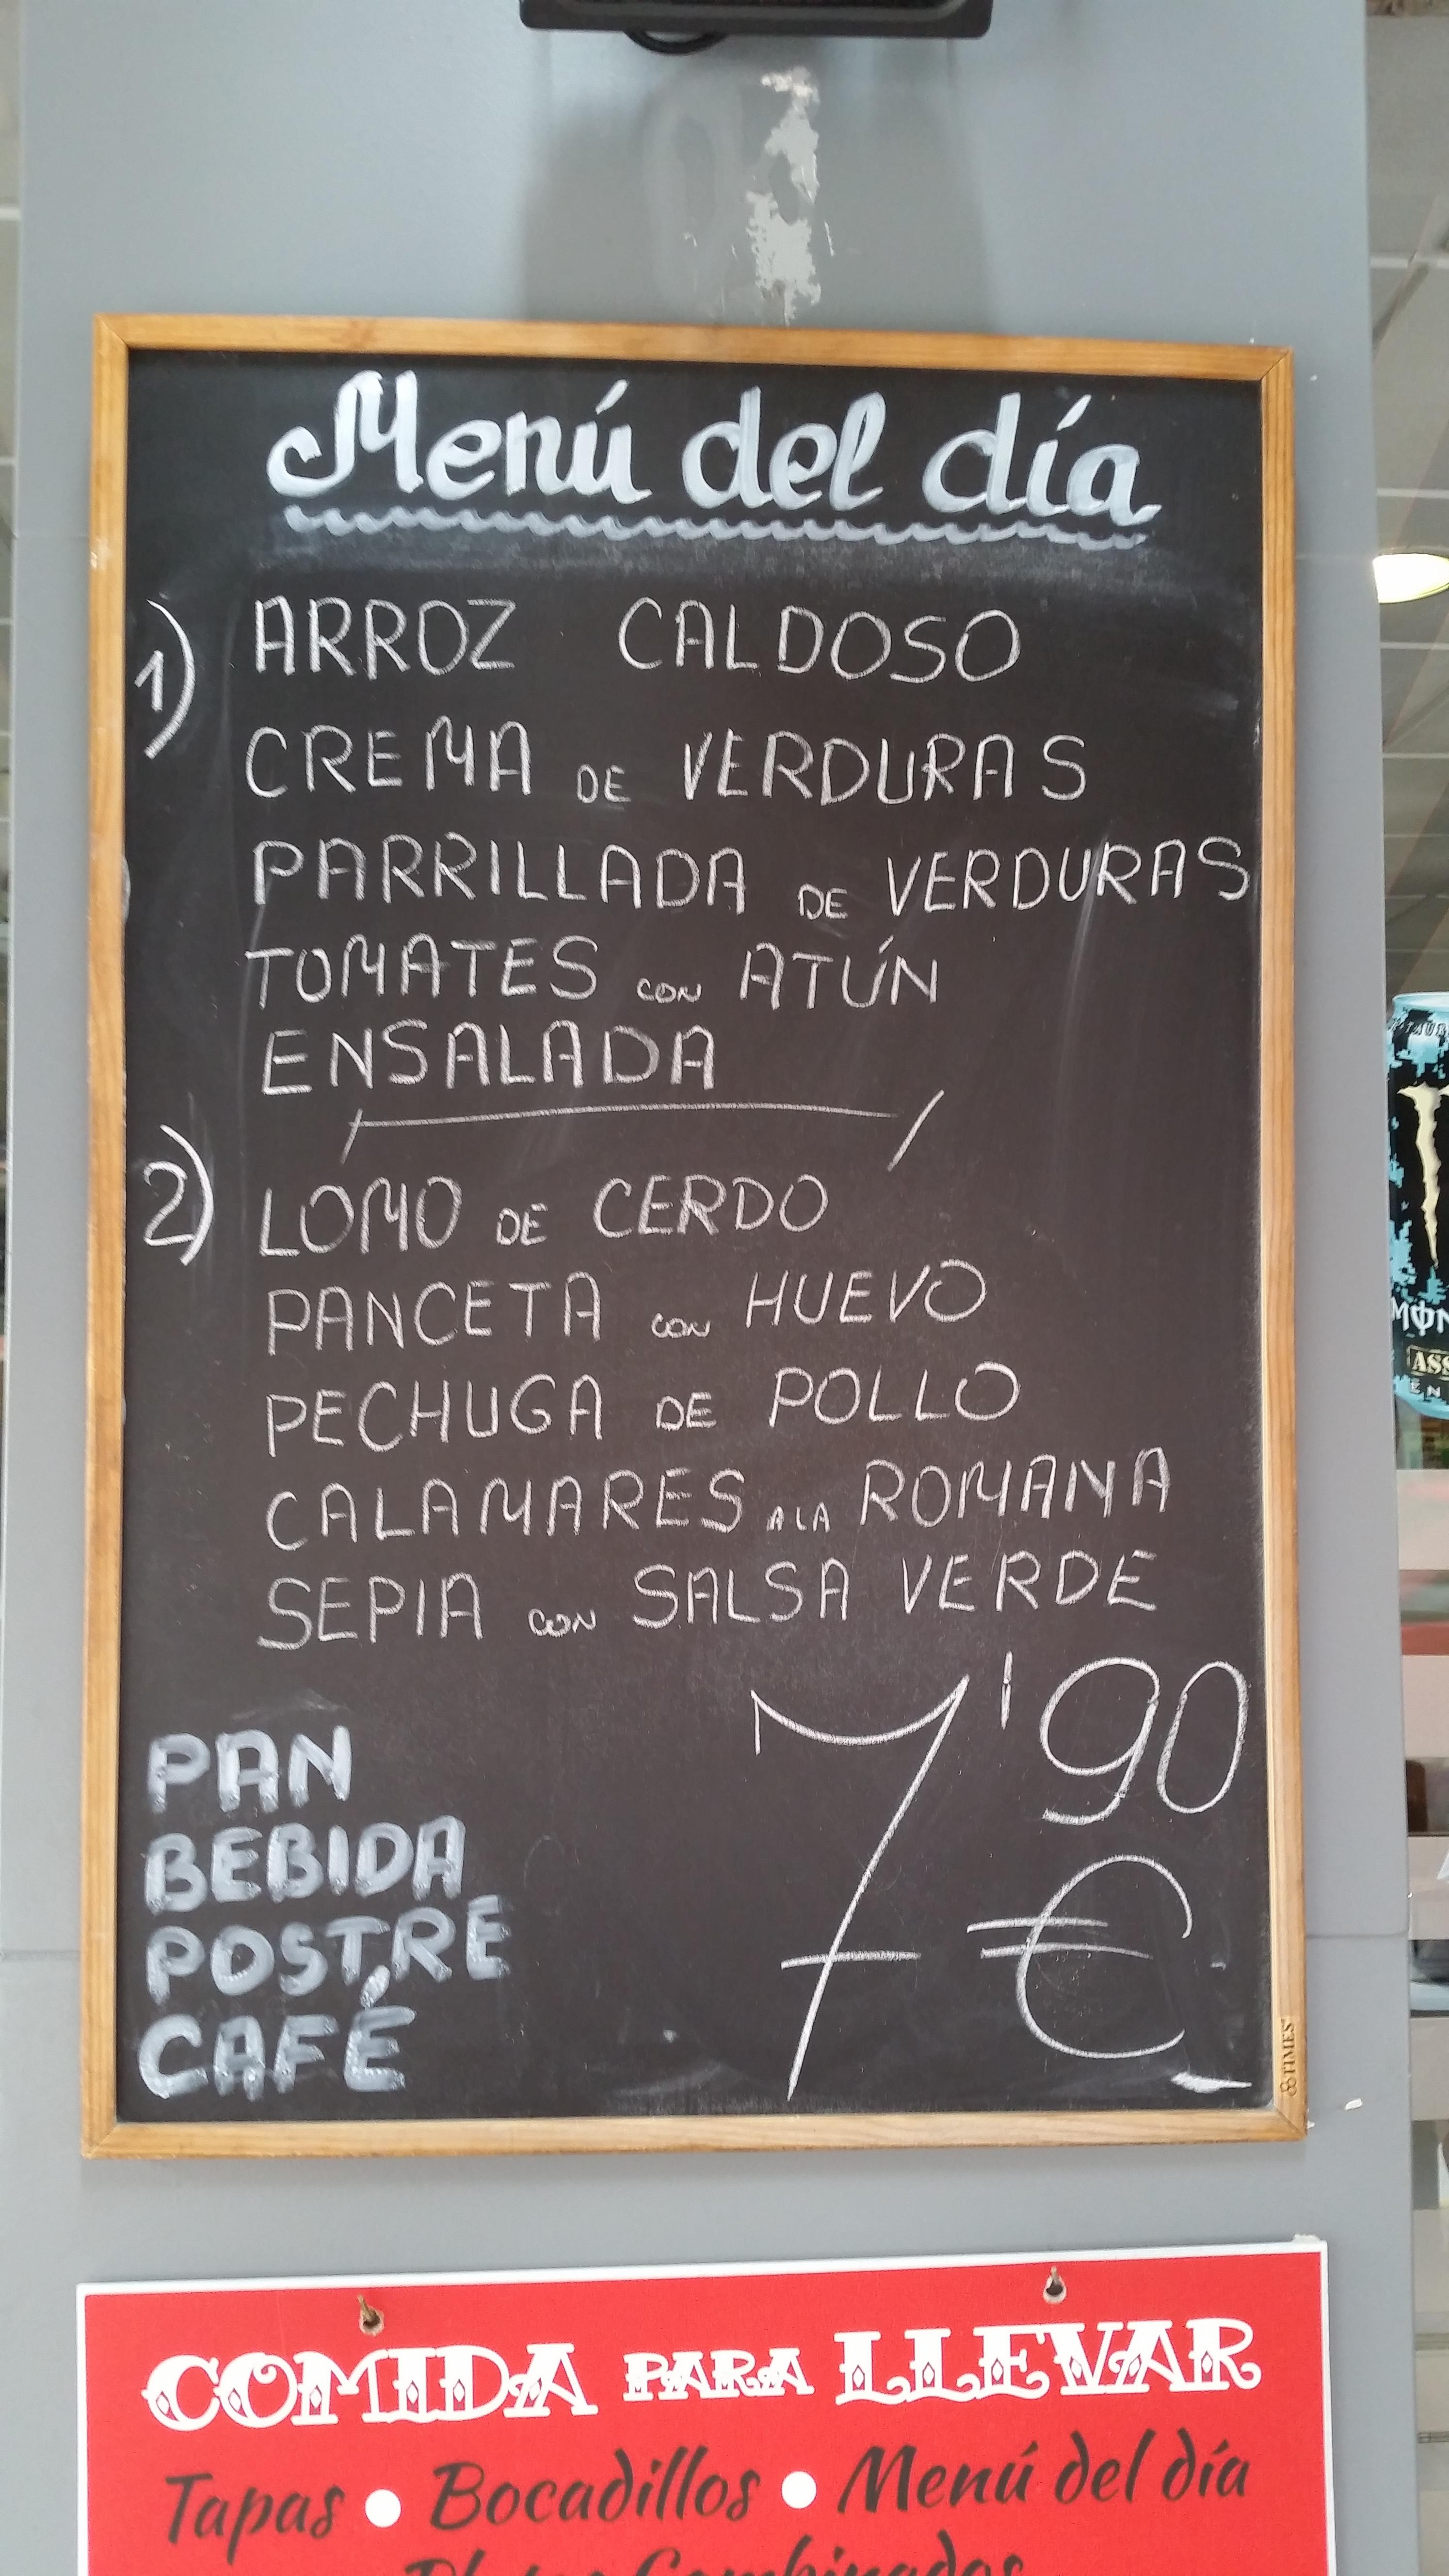 Menú del día
1) ARROZ CALDOSO
CREMA DE VERDURAS
PARRILLADA DE VERDURAS
TOMATES CON ATÚN
ENSALADA
2) LOMO DE CERDO
PANCETA CON HUEVO
PECHUGA DE POLLO
CALAMARES A LA ROMANA
SEPIA CON SALSA VERDE
7'90 €
PAN
BEBIDA
POSTRE
CAFÉ
TIMES
COMIDA PARA LLEVAR
Tapas • Bocadillos • Menú del día
Platos Combinados